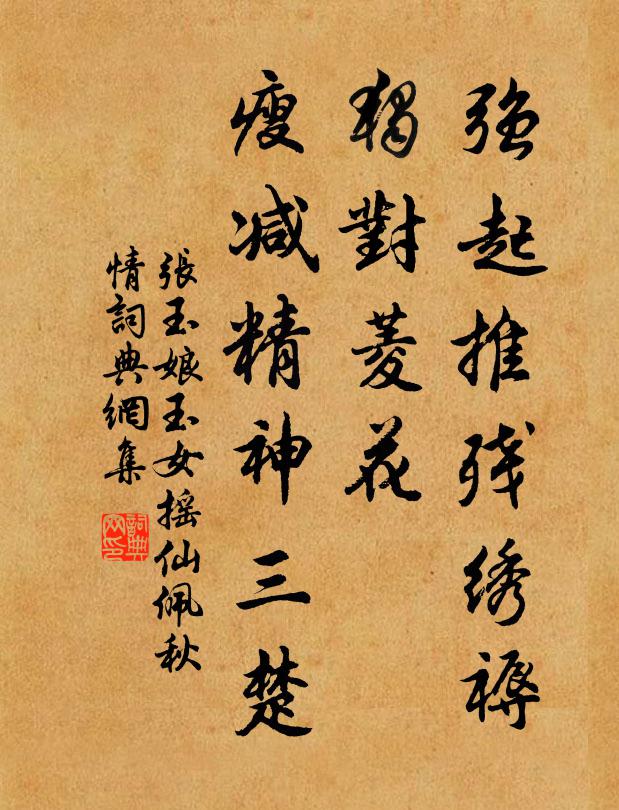 强起推残绣褥
獨對菱花
瘦减精神三楚
張玉娘玉女摇仙佩秋
情詞典網集
詞典
网印